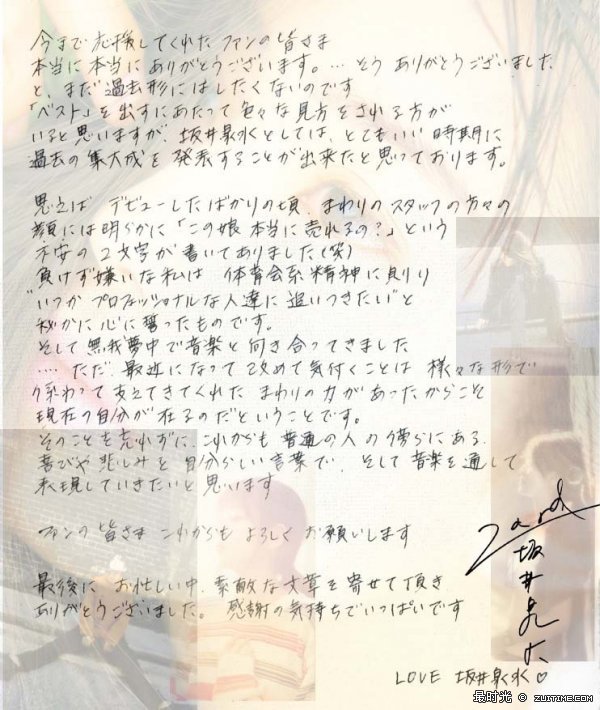 今まで応援してくれた ファンの皆さま
本当に本当にありがとうございます。… そう ありがとうございました
と、まだ過去形にはしたくないのです
「ベスト」を出すにあたって色々な見方をされる方が
いると思いますが、坂井泉水としては、とてもいい時期に
過去の集大成を発表することが出来たと思っております。
思えば デビューしたばかりの頃、まわりのスタッフの方々の
顔には明らかに「この娘 本当に売れるの?」という
不安の2文字が書いてありました(笑)
負けず嫌いな私は 体育会系精神に則り
"いつか プロフェッショナルな人達に追いつきたい"と
秘かに心に誓ったものです。
そして無我夢中で音楽と向き合ってきました
…. ただ、最近になって改めて気付くことは 様々な形で
係わって支えてきてくれた まわりの力があったからこそ
現在の自分が在るのだということです。
そのことを忘れずに、これからも 普通の人の傍らにある、
喜びや悲しみを 自分らしい言葉で、そして音楽を通して
表現していきたいと思います
ファンの皆さま これからも よろしく お願いします
Zard
坂井泉水
最後に お忙しい中、素敵な文章を寄せて頂き
ありがとうございました。 感謝の気持ちでいっぱいです
LOVE 坂井泉水♡
最时光 © ZUITIME.COM